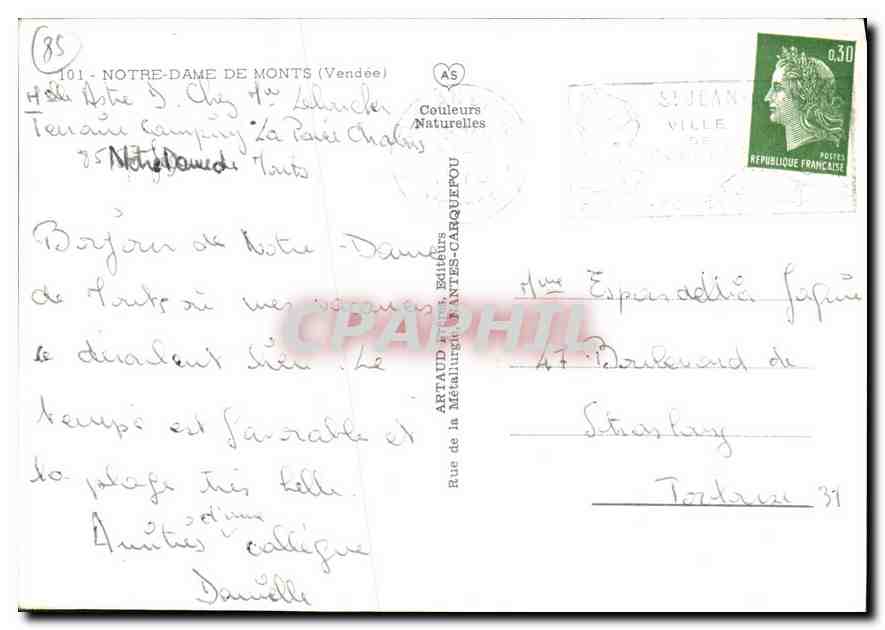 85
101 - NOTRE-DAME DE MONTS (Vendée)
Melle Astre D. Chez Mr
Terrain Camping La Parée
85 Notre Dame de Monts
AS
Couleurs
Naturelles
ST JEAN
VILLE
DE
0,30
POSTES
REPUBLIQUE FRANÇAISE
Bonjour de Notre-Dame
de Monts où mes vacances
se déroulent bien. Le
temps est favorable et
la plage très belle.
Amitiés d'une collègue
Danielle
ARTAUD Frères, Editeurs
Rue de la Métallurgie, NANTES-CARQUEFOU
CPAPHIL
Mme
47 Boulevard de
Strasbourg
Toulouse 31